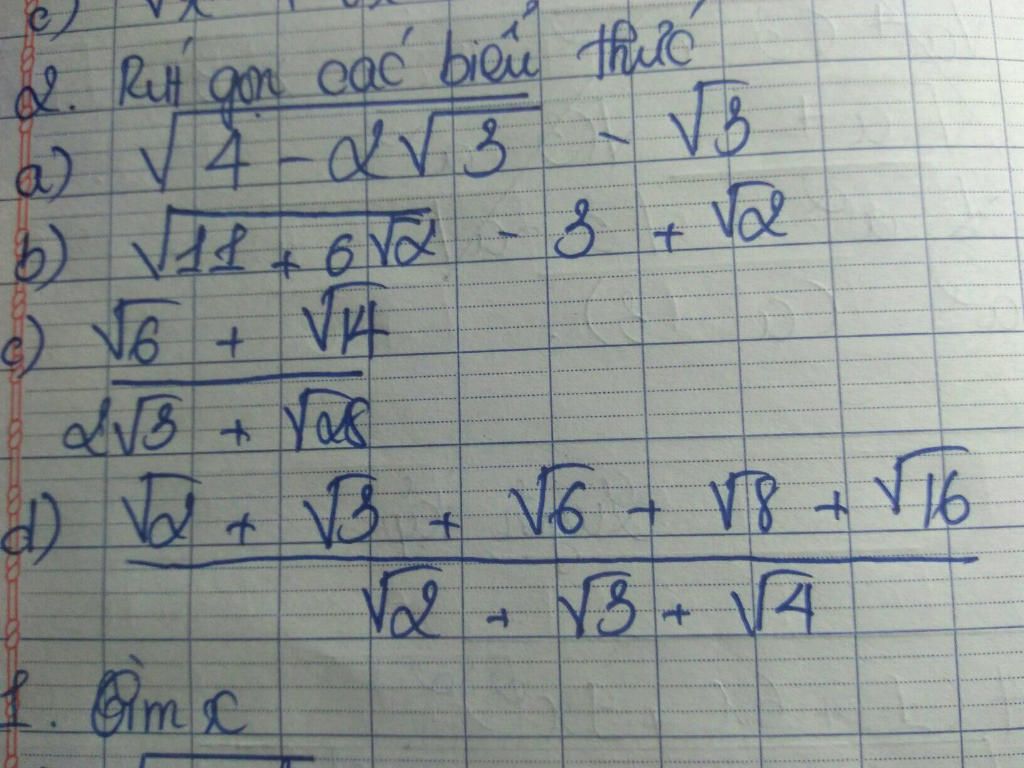 2. Rút gọn các biểu thức
a) √(4 - 2√3) - √3
b) √(11 + 6√2) - 3 + √2
c) (√6 + √14) / (2√3 + √28)
d) (√2 + √3 + √6 + √8 + √16) / (√2 + √3 + √4)
1. Tìm x